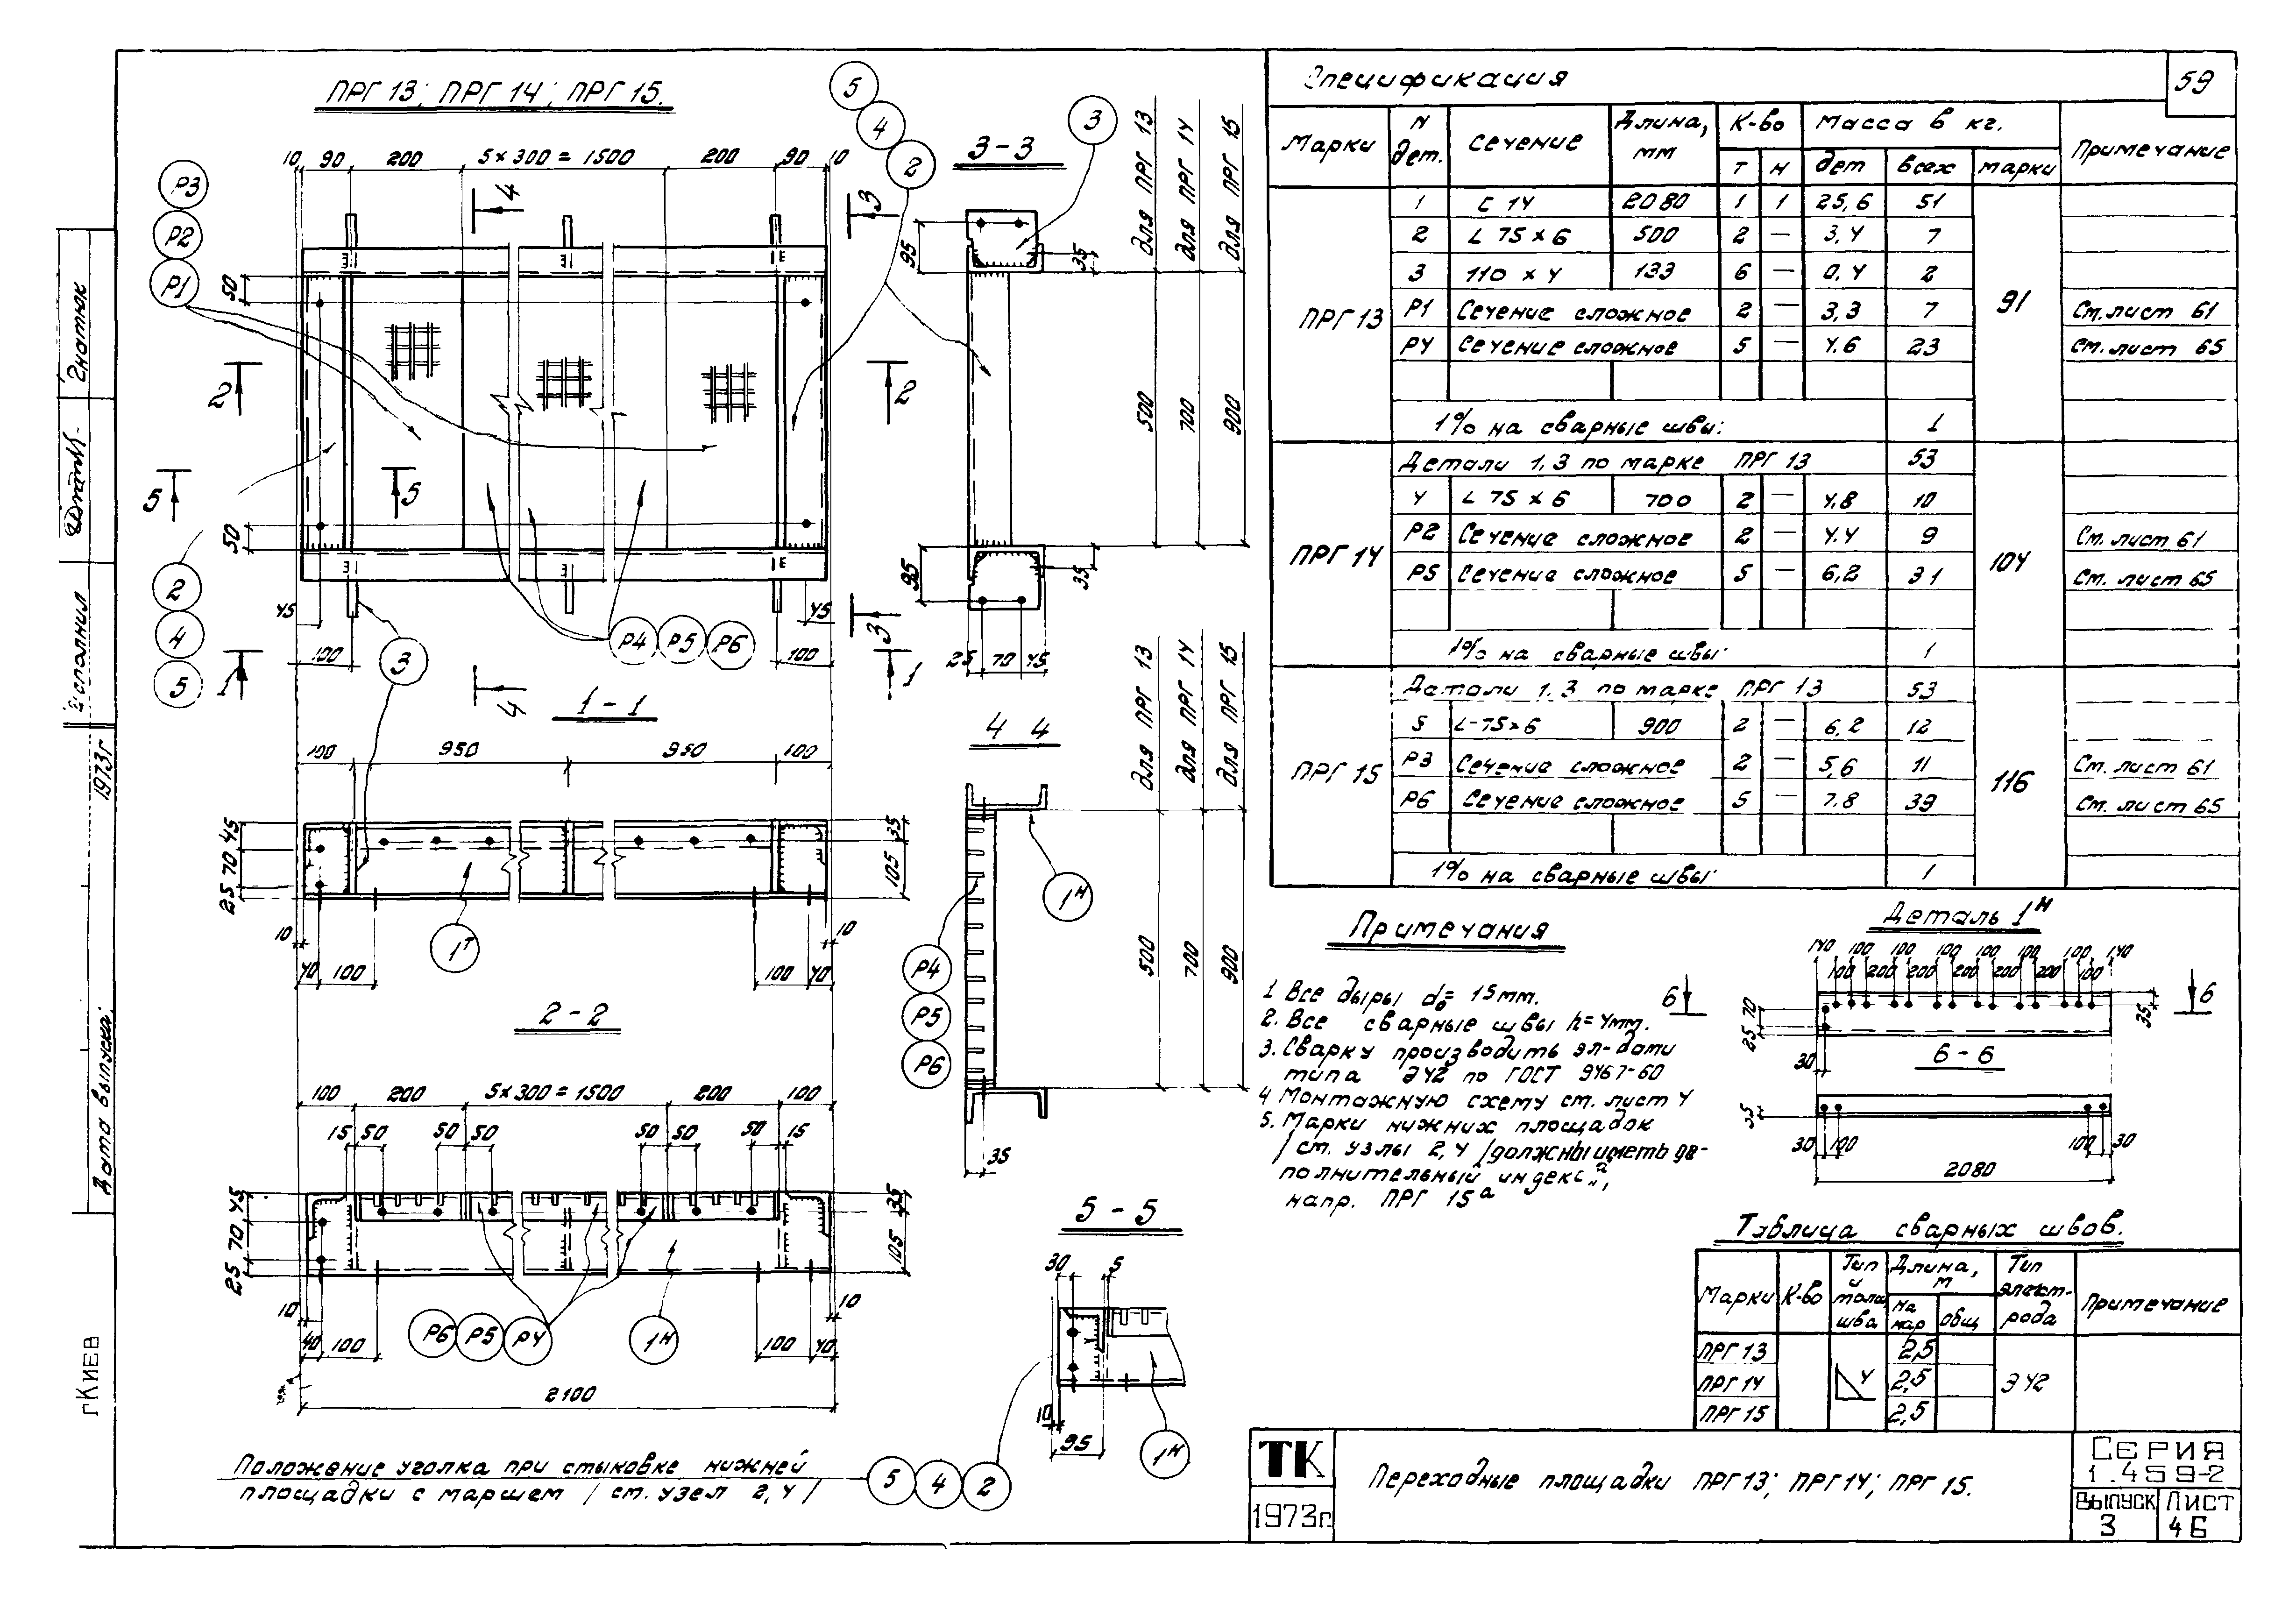 ПРГ 13; ПРГ 14; ПРГ 15.
10 90 200 5×300=1500 200 90 10
Р3
Р2
Р1
5
4
2
3
3-3
для ПРГ 13
для ПРГ 14
для ПРГ 15
4
3
50
95
35
500
700
900
2
2
5
5
50
95
35
2
4
5
45
100
3
Р4 Р5 Р6
45
100
3
1
1
4
25 70 45
1-1
100 950 950 100
45
70
25
35
105
1т
10
40 100
100 40
10
4 4
для ПРГ 13
для ПРГ 14
для ПРГ 15
1н
500
700
900
Р4
Р5
Р6
35
2-2
100 200 5×300=1500 200 100
15 50 50 50 50 50 50 15
45
70
25
35
105
10
40 100
Р6 Р5 Р4
1н
100 40
10
2100
5-5
30 5
10
95
1н
Положение уголка при стыковке нижней
площадки с маршем / ст. узел 2,4/
5 4 2
Спецификация
59
Марки
N дет.
Сечение
Длина, мм
К-во
Масса в кг.
Примечание
т н дет всех марки
ПРГ 13
1 С 14 2080 1 1 25,6 51
2 L 75×6 500 2 — 3,4 7
3 110×4 133 6 — 0,4 2
91
Р1 Сечение сложное 2 — 3,3 7 См. лист 61
Р4 Сечение сложное 5 — 4.6 23 См. лист 65
1% на сварные швы: 1
ПРГ 14
Детали 1,3 по марке ПРГ 13 53
4 L 75×6 700 2 — 4.8 10
Р2 Сечение сложное 2 — 4.4 9 См. лист 61
104
Р5 Сечение сложное 5 — 6,2 31 См. лист 65
1% на сварные швы: 1
ПРГ 15
Детали 1.3 по марке ПРГ 13 53
5 L-75×6 900 2 — 6,2 12
Р3 Сечение сложное 2 — 5,6 11 См. лист 61
116
Р6 Сечение сложное 5 — 7.8 39 См. лист 65
1% на сварные швы: 1
Примечания
1 Все дыры d₀= 15мм.
2. Все сварные швы h=4мм.
3. Сварку производить эл-дами
типа Э42 по ГОСТ 9467-60
4 Монтажную схему ст. лист 4
5. Марки нижних площадок
/ст. узлы 2,4/должны иметь до-
полнительный индекс „а",
напр. ПРГ 15а
Деталь 1н
140 100 100 100 100 100 100 100 140
100 200 200 200 200 200 100
6 6
70
25
35
30
6-6
35
30 100
100 30
2080
Таблица сварных швов.
Марки
К-во
Тип и толщ шва
Длина, м
на мар
общ
Тип электрода
Примечание
ПРГ 13 2,5
ПРГ 14 4 2,5 Э42
ПРГ 15 2,5
ТК
1973г.
Переходные площадки ПРГ 13; ПРГ 14; ПРГ 15.
Серия
1.459-2
Выпуск Лист
3 46
Исполнил
1973г
Дата выпуска:
г Киев